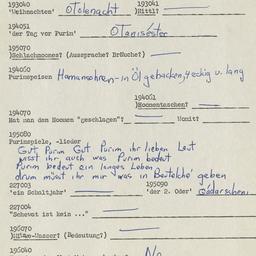 193040 193041
'Weihnachten' Otolenacht )Nittl?
194051
'der Tag vor Purim' Otaniséster
195070
)Schlachmones? (Aussprache? Brauche?)
194060
Purimspeisen Hamansohren - in Öl gebacken, 4eckig u. lang
194061
)Homentaschen?
194070
Hat man den Homen "geschlagen"? Womit?
195080
Purimspiele, -lieder
Gut Purim Gut Purim ihr lieben Leut
wisst ihr auch was Purim bedeut
Purim bedeut ein langes Leben
drum müsst ihr mir was in Beutelche geben
227003 195090
'ein Schaltjahr' 'der 2. Oder' Odarscheni
227004
"Schevat ist kein ..."
196070
(Bedeutung?)
196040
No